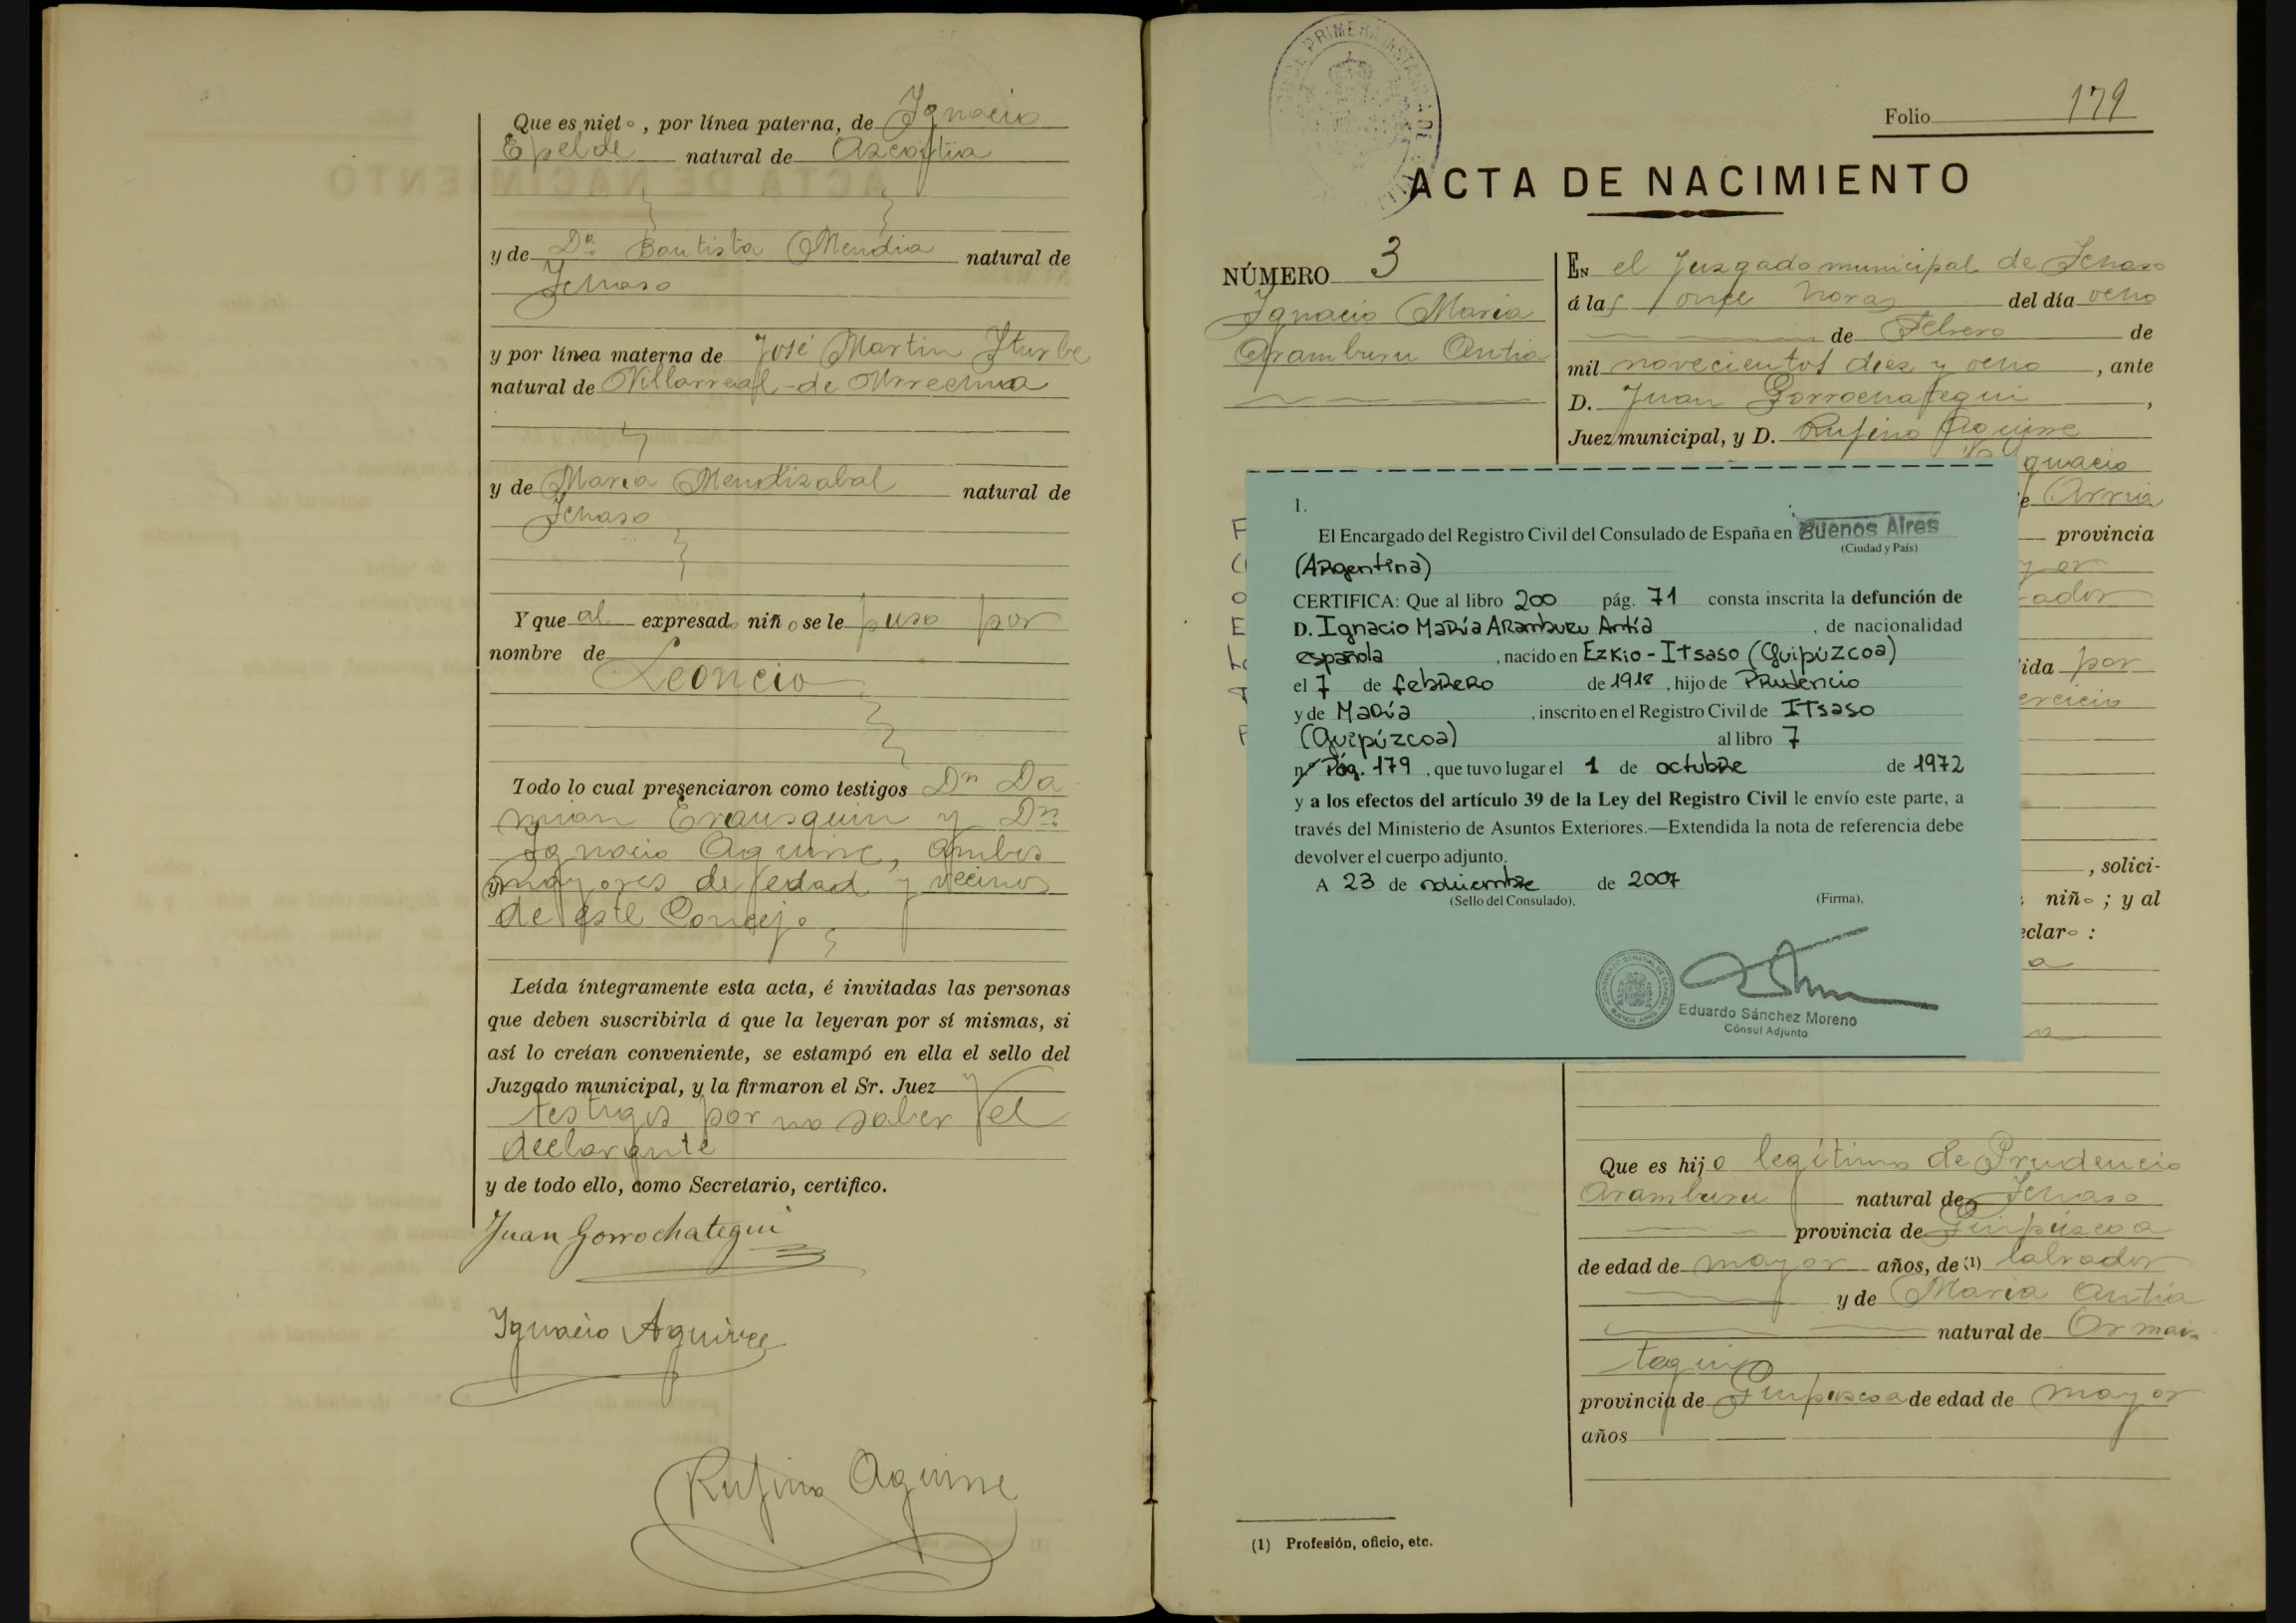 Que es nieto, por línea paterna, de Ignacio
Epelde natural de Azcoitia
y de Dª Bautista Mendia natural de
Ichaso
y por línea materna de José Martin Iturbe
natural de Villarreal-de Urrechua
y de Maria Mendizabal natural de
Ichaso
Y que al expresado niño se le puso por
nombre de
Leoncio
Todo lo cual presenciaron como testigos Dn Da
mian Erausquin y Dn
Ignacio Aguirre, ambos
mayores de edad y vecinos
de este Concejo
Leída íntegramente esta acta, é invitadas las personas
que deben suscribirla á que la leyeran por sí mismas, si
así lo creían conveniente, se estampó en ella el sello del
Juzgado municipal, y la firmaron el Sr. Juez y
testigos por no saber el
declarante
y de todo ello, como Secretario, certifico.
Juan Gorrochategui
Ignacio Aguirre
Rufino Aguirre
Folio 179
ACTA DE NACIMIENTO
NÚMERO 3
Ignacio Maria
Aramburu Antia
En el Juzgado municipal de Ichaso
á las once horas del día ocho
de Febrero de
mil novecientos diez y ocho, ante
D. Juan Gorrochategui,
Juez municipal, y D. Rufino Aguirre
Ignacio
e Arria
provincia
ida por
, solici-
niño; y al
eclaro:
1.
El Encargado del Registro Civil del Consulado de España en Buenos Aires
(Ciudad y País)
(Argentina)
CERTIFICA: Que al libro 200 pág. 71 consta inscrita la defunción de
D. Ignacio María Aramburu Antía, de nacionalidad
española, nacido en Ezkio-Itsaso (Guipúzcoa)
el 7 de febrero de 1918, hijo de Prudencio
y de María, inscrito en el Registro Civil de Itsaso
(Guipúzcoa) al libro 7
nº Pág. 179, que tuvo lugar el 1 de octubre de 1972
y a los efectos del artículo 39 de la Ley del Registro Civil le envío este parte, a
través del Ministerio de Asuntos Exteriores.—Extendida la nota de referencia debe
devolver el cuerpo adjunto.
A 23 de noviembre de 2007
(Sello del Consulado). (Firma).
Eduardo Sánchez Moreno
Cónsul Adjunto
Que es hijo legítimo de Prudencio
Aramburu natural de Ichaso
provincia de Guipúzcoa
de edad de mayor años, de (1) labrador
y de Maria Antia
natural de Ormaiz
tegui
provincia de Guipuzcoa de edad de mayor
años
(1) Profesión, oficio, etc.